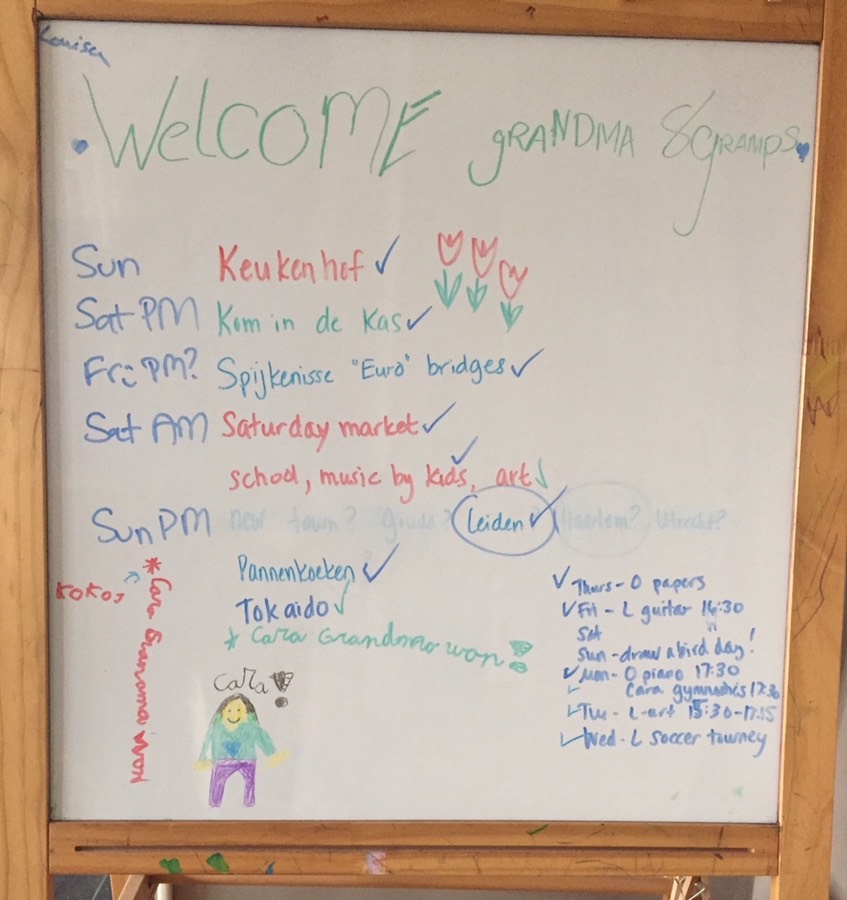 Louisa
WelcoME gRANDMA & gRAMPS
Sun Keukenhof ✓
Sat PM Kom in de Kas ✓
Fri PM? Spijkenisse "Euro" bridges ✓
Sat AM Saturday market ✓
school, music by kids, art ✓
Sun PM new town? Gouda? Leiden ✓ Haarlem? Utrecht?
Pannenkoeken ✓
Tokaido ✓
* Cara Grandma won!
Kokos
* Cara Grandma won
Cara!
✓ Thurs - O papers
✓ Fri - L guitar 14:30
Sat
Sun - draw a bird day!
✓ Mon - O piano 17:30
Cara gymnastics 17:30
✓ Tue - L art 15:30-17:15
✓ Wed - L soccer tourney